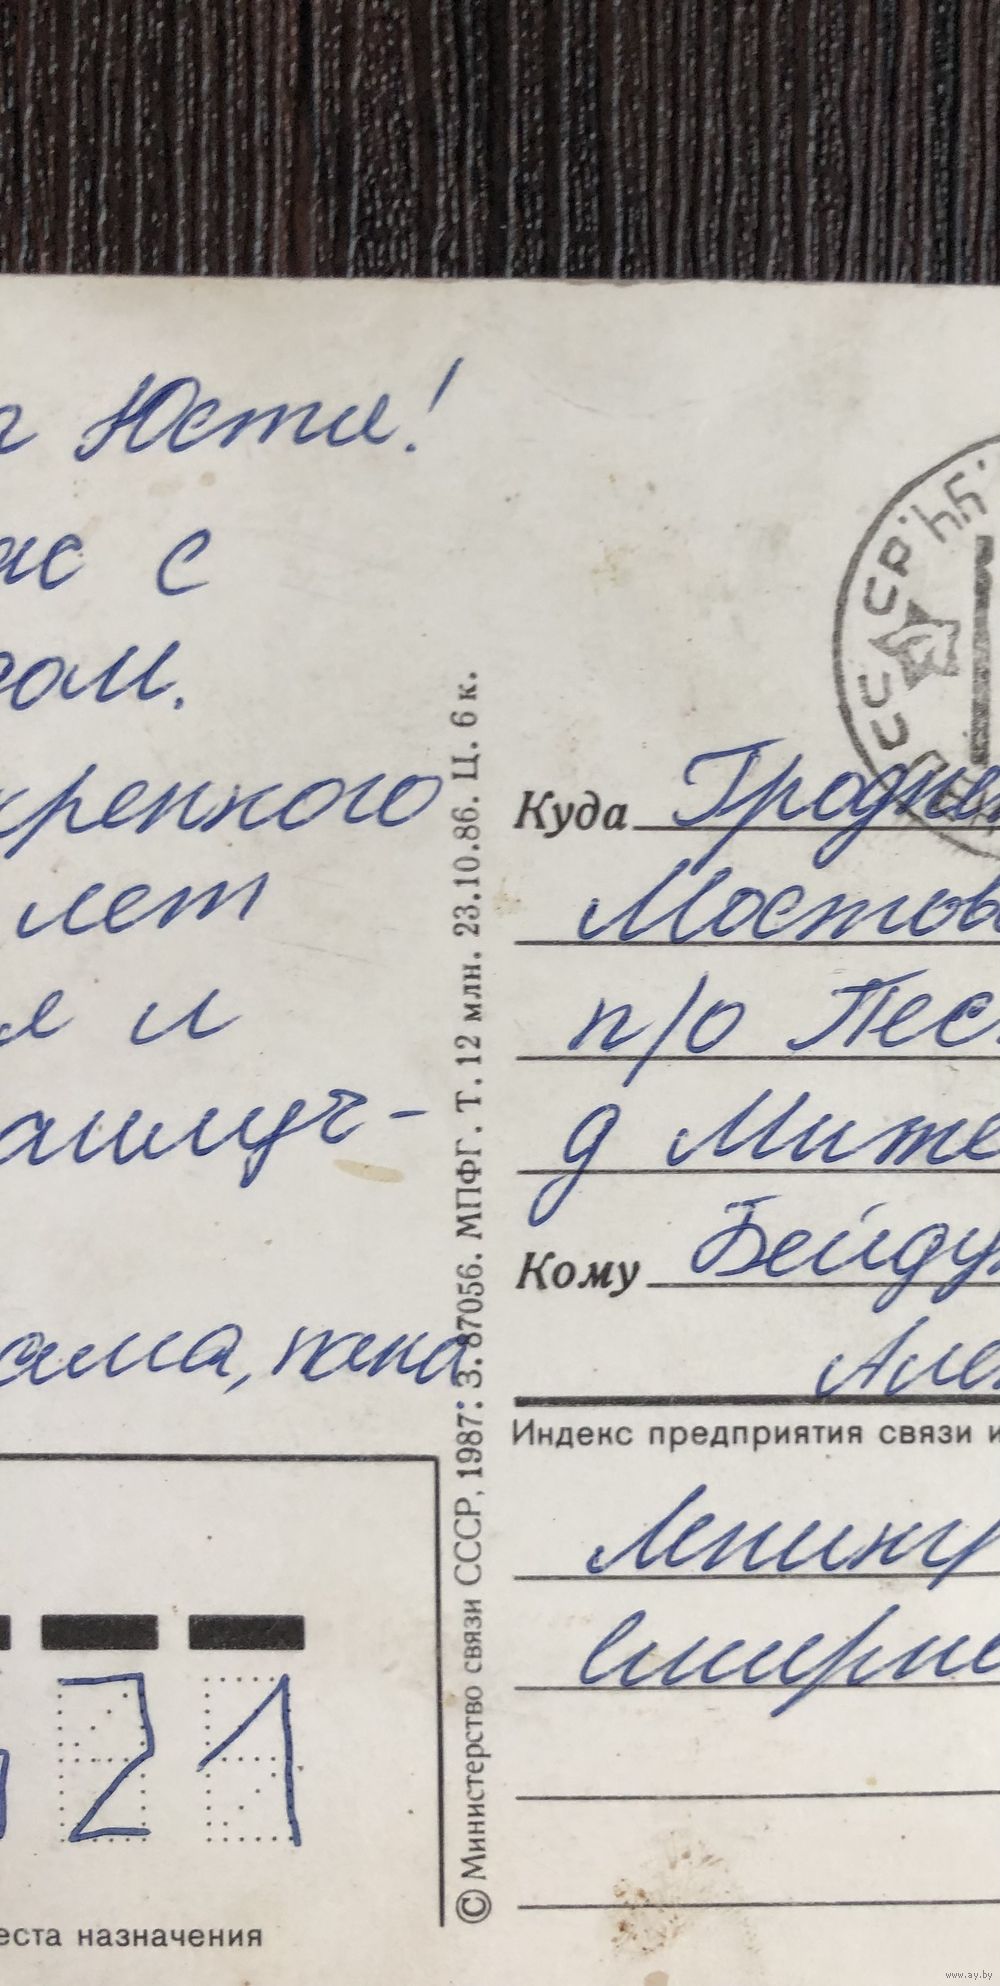 Юсти!
с
кренного
лет
я и
аилуч-
ама, папа
21
еста назначения
© Министерство связи СССР, 1987. З. 87056. МПФГ. Т. 12 млн. 23.10.86. Ц. 6 к.
СССР
Куда Гродне
Мостов
п/о Пес
д Миже
Кому Бейду
Але
Индекс предприятия связи и
Ленингр
www.ay.by